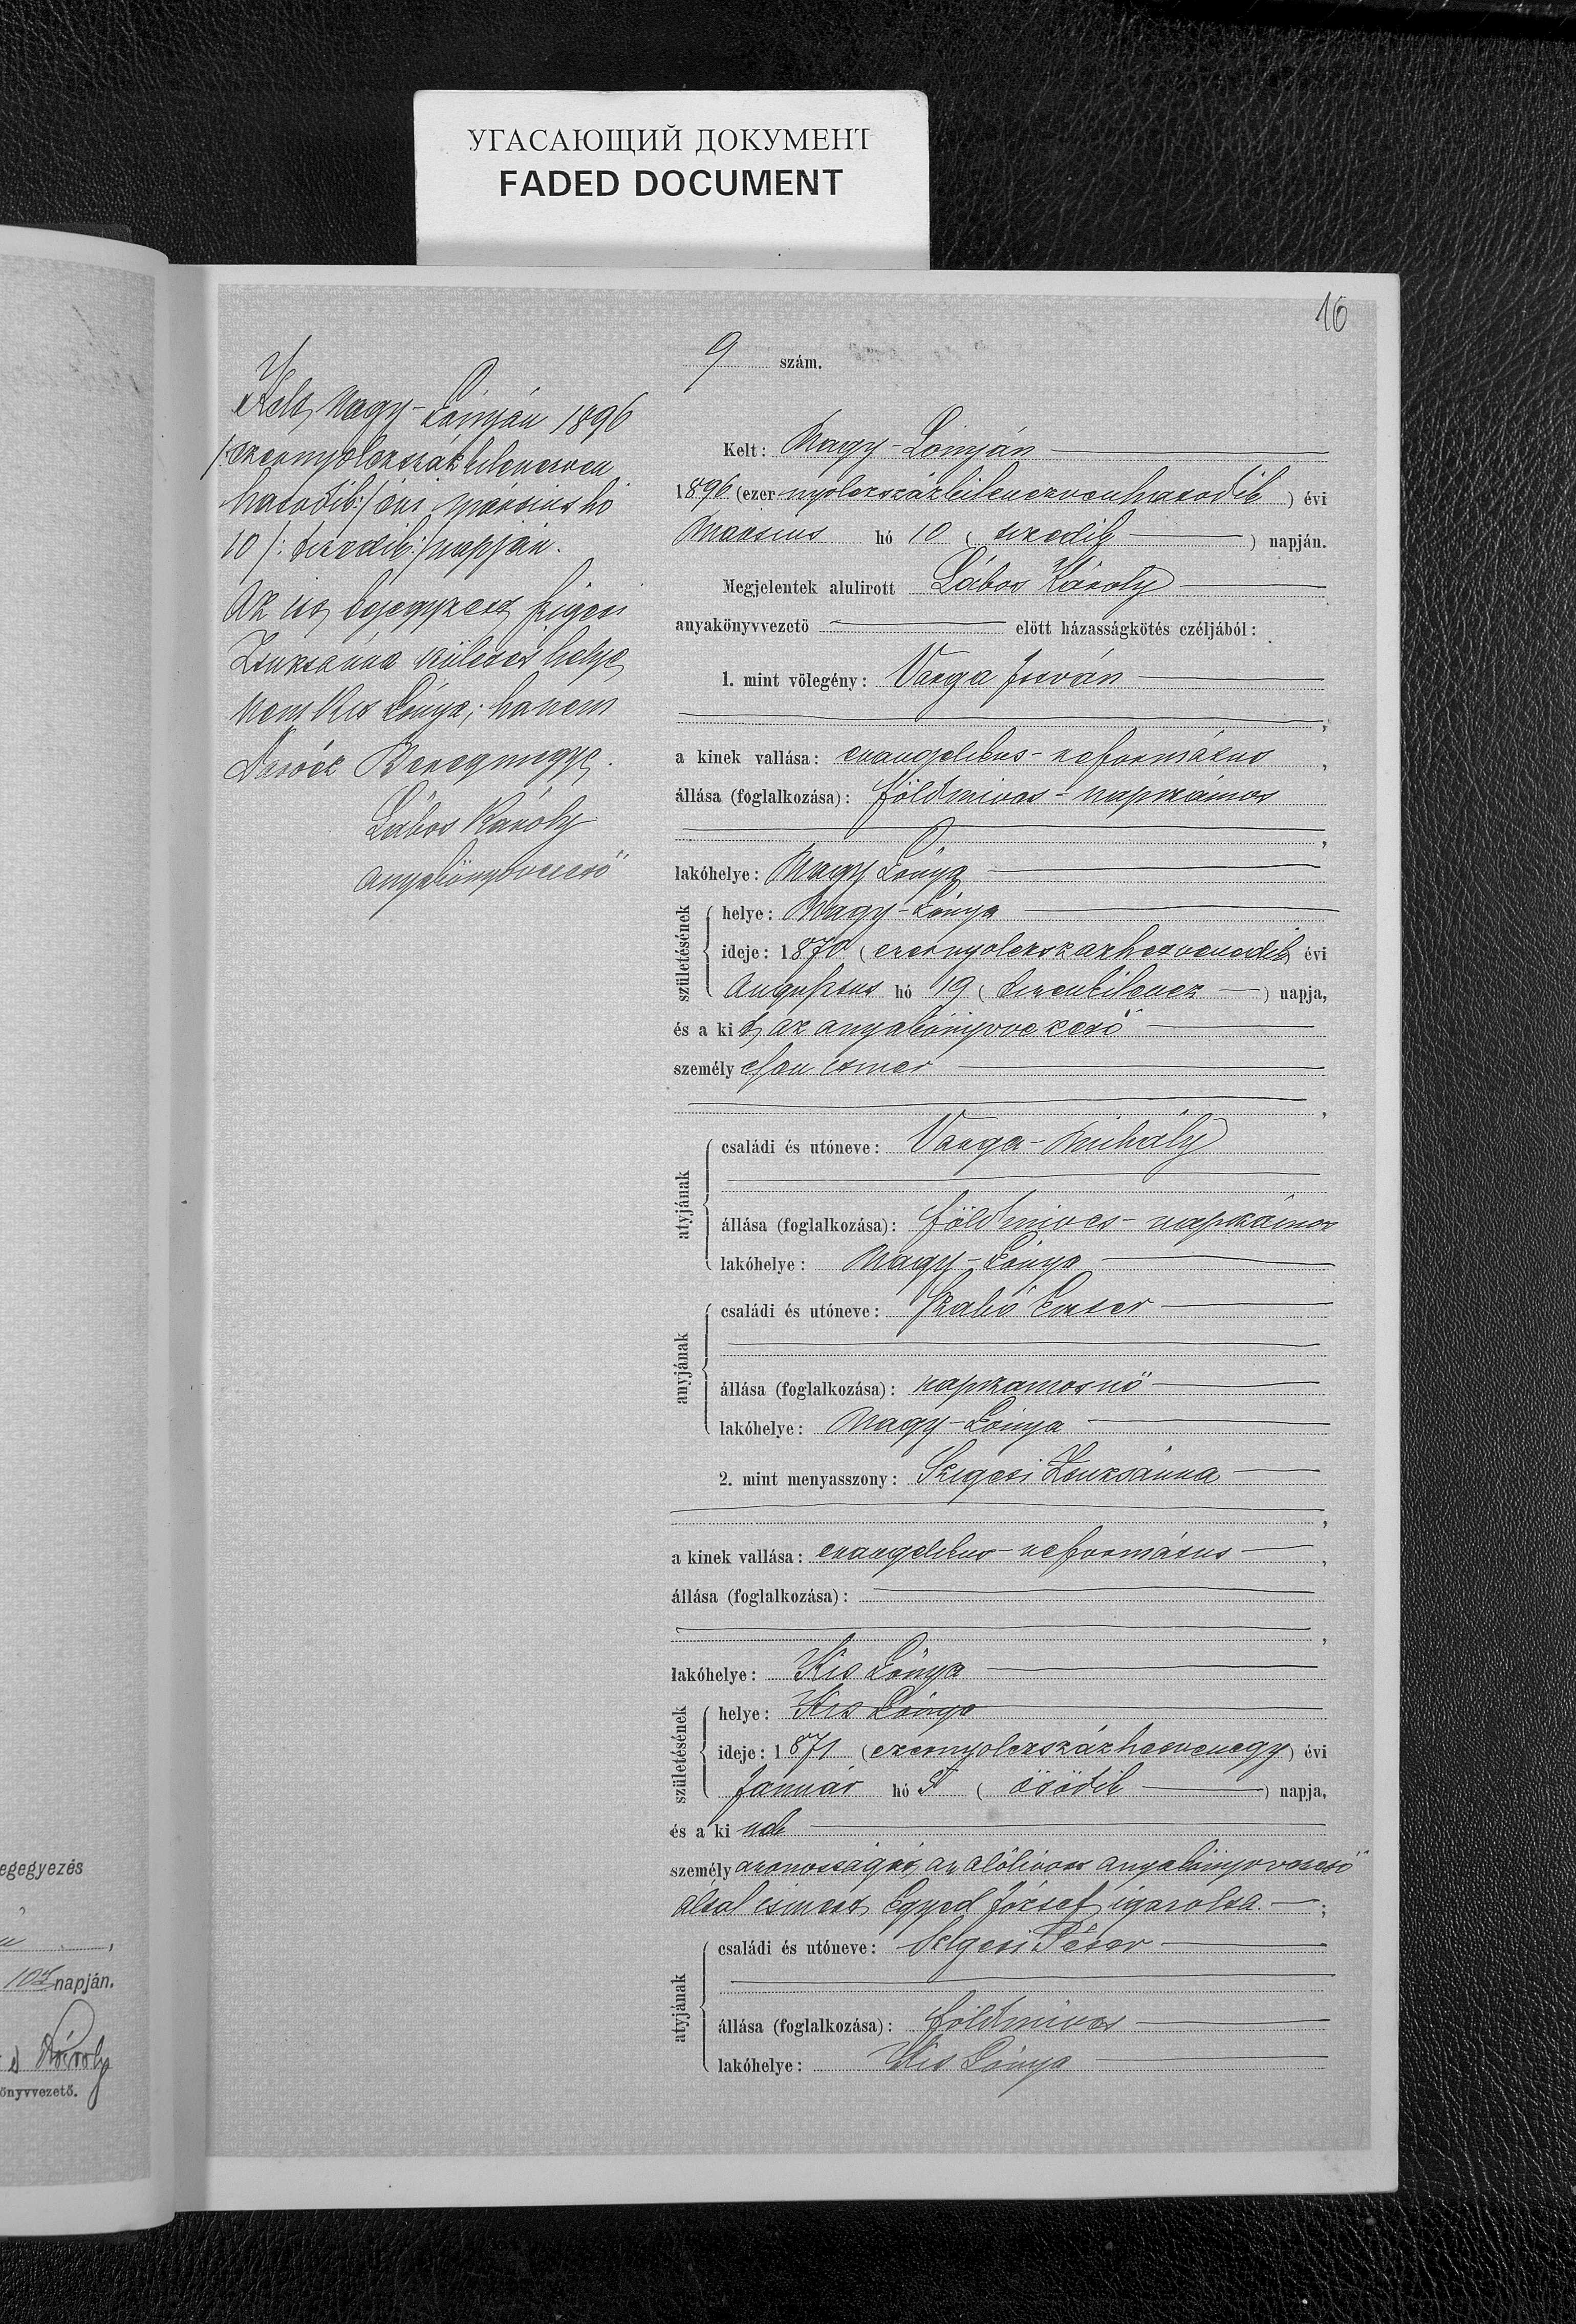 УГАСАЮЩИЙ ДОКУМЕНТ
FADED DOCUMENT
16
9 szám.
Kelt, Nagy-Lónyán 1896
/:ezernyolczszázkilenczven
hatodik:/ évi márczius hó
10 /: tizedik:/ napján.
Az itt bejegyzett Szigeti
Zsuzsánna születés helye
nem Kis Lónya; hanem
Darócz Beregmegye.
Lábos Károly
anyakönyvvezető
Kelt: Nagy-Lónyán
1896 (ezer nyolczszázkilenczvenhatodik) évi
Márczius hó 10 (tizedik) napján.
Megjelentek alulirott Lábos Károly
anyakönyvvezető előtt házasságkötés czéljából:
1. mint vőlegény: Varga István
,
a kinek vallása: evangelikus-református,
állása (foglalkozása): földmives-napszámos
,
lakóhelye: Nagy Lónya
születésének
helye: Nagy-Lónya
ideje: 1870 (ezernyolczszázhetvenedik) évi
Augusztus hó 19 (tizenkilencz) napja,
és a kit, az anyakönyvvezető
személyesen ismer
,
atyjának
családi és utóneve: Varga-Mihály
állása (foglalkozása): földmives-napszámos
lakóhelye: Nagy-Lónya
anyjának
családi és utóneve: Szabó Eszter
állása (foglalkozása): napszamosnő
lakóhelye: Nagy-Lónya
2. mint menyasszony: Szigeti Zsuzsánna
,
a kinek vallása: evangelikus-református,
állása (foglalkozása):
,
lakóhelye: Kis Lónya
születésének
helye: Kis Lónya
ideje: 1871 (ezernyolczszázhetvenegy) évi
Január hó 5 (ötödik) napja,
és a kinek
személyazonosságát, az alólirott anyakönyvvezető
által ismert Egyed József igazolta.;
atyjának
családi és utóneve: Szigeti Péter
állása (foglalkozása): földmives
lakóhelye: Kis Lónya
egegyezés
,
10 napján.
Károly
önyvvezető.